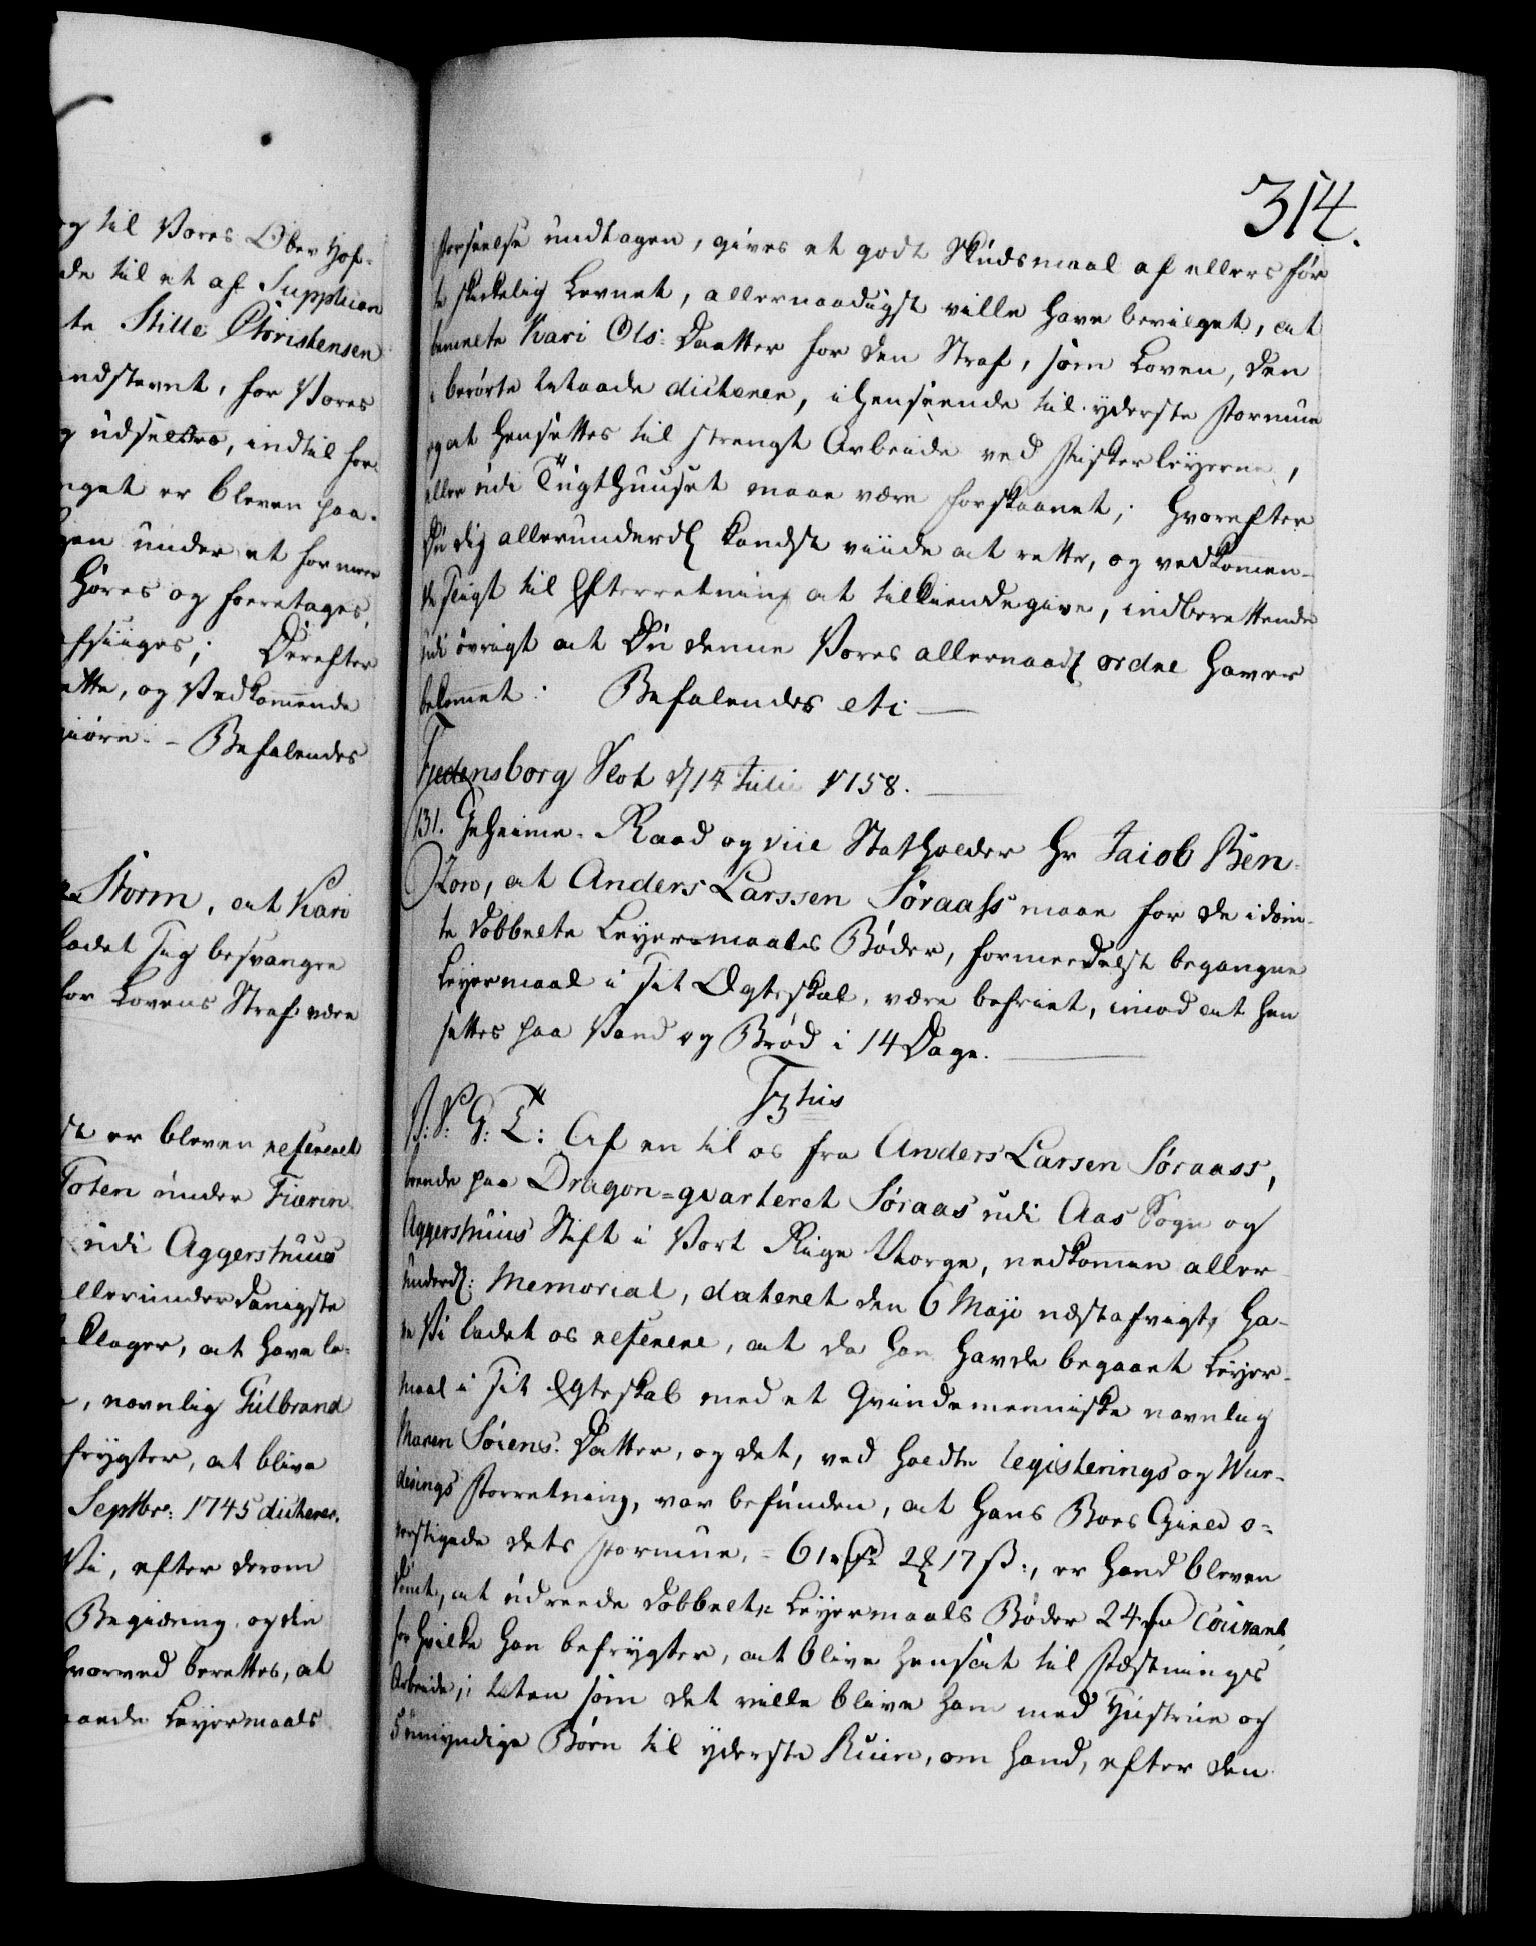 og til Vores Ober Hof-
de til et af Supplican
te Stille Christensen
indstevnt, for Vores
g udsettes, indtil for
nget er bleven paa-
gen under et for meer
høres og foretages,
afsiiges; Derefter
ette, og Vedkommende
giøre. - Befalendes
Storm, at Kari
ladet sig besvangre
for Lovens Straf være
st er bleven refereret
Toten under
udi Aggershuus
allerunderdanigste
klager, at have la-
, navnlig Gulbrand
frygter, at blive
Septbr: 1745 dicterer.
Vi, efter derom
Begiæring og din
hvorved berettes, at
Leyermaals
314.
Forseelse undtagen, gives et godt Skudsmaal af ellers før
te skikkelig Levnet, allernaadigst ville have bevilget, at
bemelte Kari Ols: Daatter for den Straf, som Loven, den
i berørte tilfælde dicterer, i henseende til yderste Formue
og at hensettes til strengt Arbeide ved Fiskerleyerne,
eller udi Tugthuuset maae være forskaanet; Hvorefter
Du dig allerunderd: kandst viide at rette, og vedkommen-
de sligt til Efterretning at tilkiendegive, indberettende
udi øvrigt at Du denne Vores allernaad: ordre haver
bekommet. Befalendes etc
Fredensborg Slot d 14 Julii 1758.
131. Geheime-Raad og vice Statholder Hr Jacob Ben-
zon, at Anders Larssen Søraass maae for de idøm-
te dobbelte Leyermaals Bøder, formedelst begangne
Leyermaal i sit Ægteskab, være befriet, imod at hen
settes paa Vand og Brød i 14 Dage.
F: V: G: T: Af en til os fra Anders Larsen Søraass,
boende paa Dragon-qvarteret Søraas udi Aas Sogn og
Aggershuus Stift i Vort Rige Norge, nedkommen aller
underd: Memorial, dateret den 6 Maji næstafvigt, ha-
ve Vi ladet os referere, at da han havde begaaet Leyer-
maal i sit Egteskab med et Qvindemenniske navnlig
Maren Sørens: Datter, og det, ved holdte registerings og Wur-
derings Forretning, var befunden, at hans Boes Gield o-
verstigede dets Formue, = 61 rd 2 17 ß:, er hand bleven
dømt, at udreede dobbelte Leyermaals Bøder 24 rd Courant,
for hvilke han befrygter, at blive hensat til Fæstnings
Arbeide; laten som det ville blive ham med Hustrue og
5 umyndige Børn til yderste Ruin, om hand, efter den